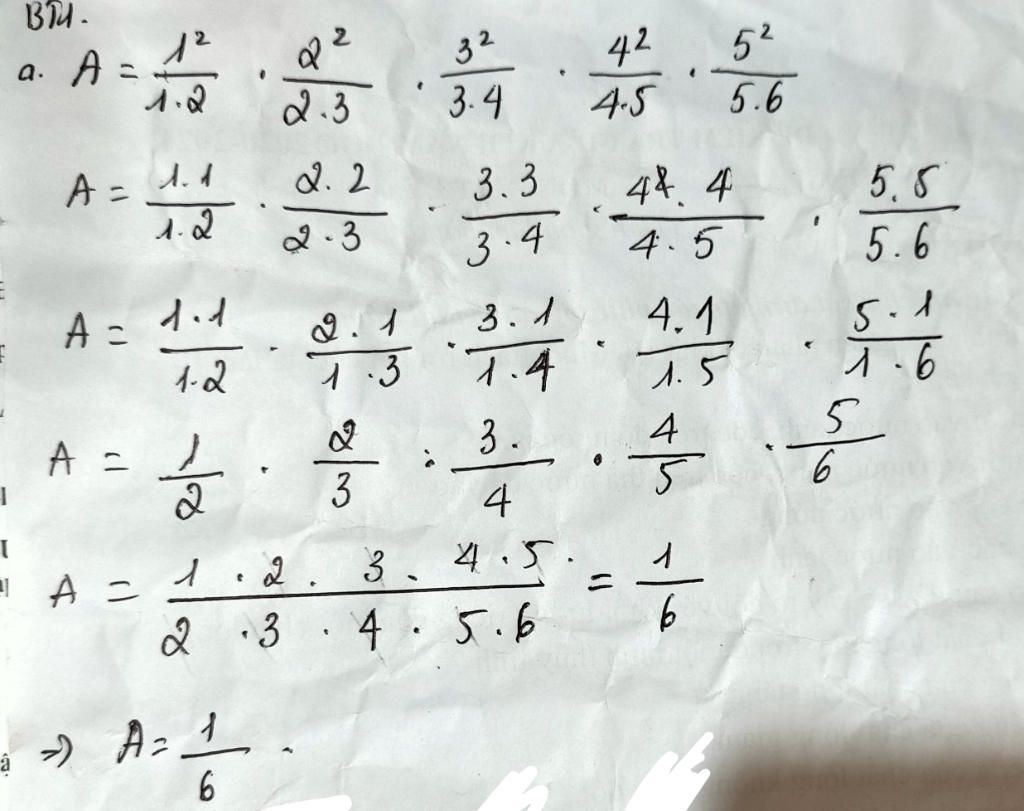 BTH.
a. A = 1²/1.2 . 2²/2.3 . 3²/3.4 . 4²/4.5 . 5²/5.6
A = 1.1/1.2 . 2.2/2.3 . 3.3/3.4 . 4.4/4.5 . 5.5/5.6
A = 1.1/1.2 . 2.1/1.3 . 3.1/1.4 . 4.1/1.5 . 5.1/1.6
A = 1/2 . 2/3 . 3/4 . 4/5 . 5/6
A = 1.2.3.4.5/2.3.4.5.6 = 1/6
=> A = 1/6.